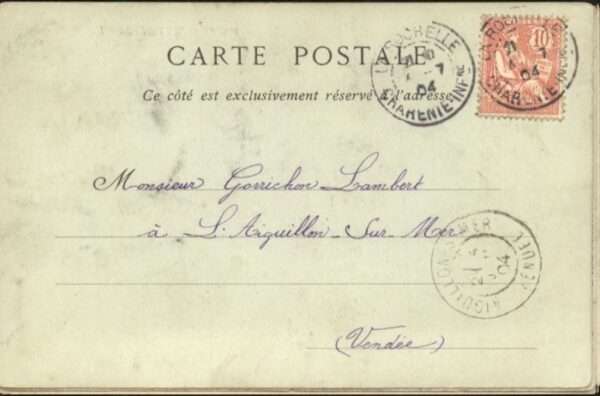 CARTE POSTALE
Ce côté est exclusivement réservé à l'adresse
LA ROCHELLE
04
CHARENTE-INFRE
10
04
Monsieur Gorrichon Lambert
à L'Aiguillon-Sur-Mer
AIGUILLON S MER
21
04
VENDEE
(Vendée)